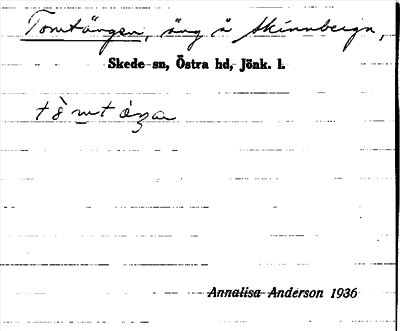 Tomtängen, äng å Skinnbergn,
Skede sn, Östra hd, Jönk. l.
Annalisa Anderson 1936